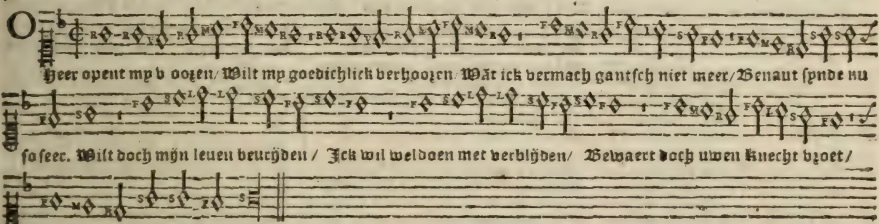 O
Heer opent my v ooren / Wilt my goedichlick verhooren / Wāt ick vermach gantsch niet meer / Benaut synde nu
so seer. Wilt doch mijn leuen beurijden / Ick wil weldoen met verblijden / Bewaert doch uwen knecht vroet /